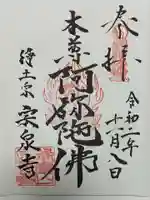 奉拝
令和二年十一月八日
本尊
阿弥陀佛
浄土宗
宗泉寺